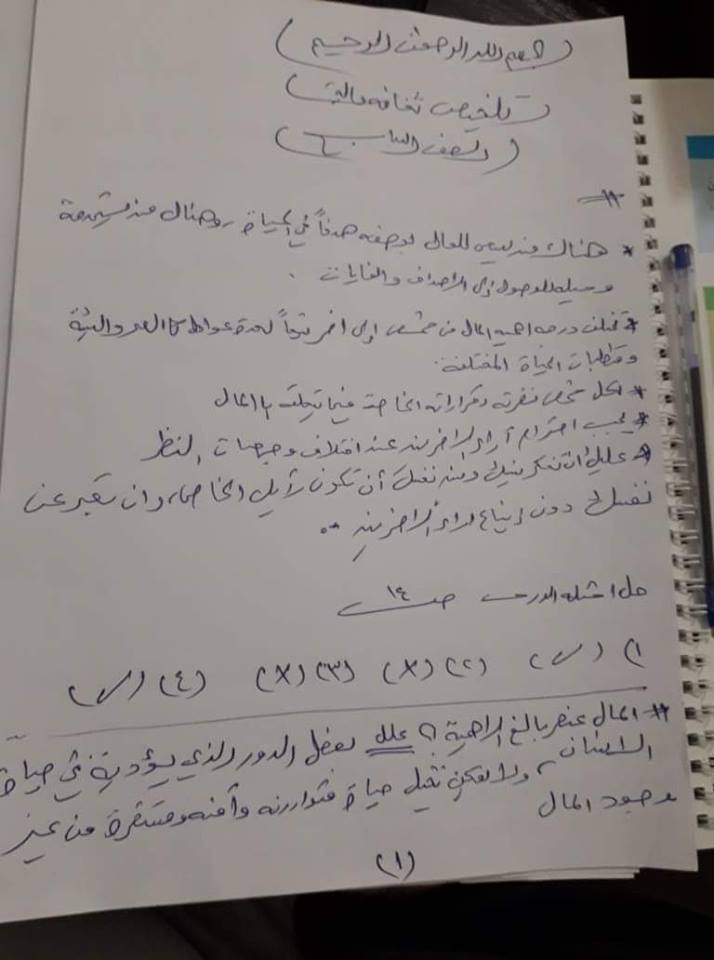 (بسم الله الرحمن الرحيم)
(تلخيص ثقافه مالية)
(الصف السابع)
* هناك من ليس للمال بوصفه هدفاً في الحياة، وهناك من يستخدمه
وسيله للوصول إلى الأهداف والغايات.
* تختلف درجه اهميه المال من شخص إلى اخر تبعاً لعدة عوامل كالعمر والبيئة
ومتطلبات الحياة المختلفة.
* لكل شخص نظرته وقراراته الخاصة فيما يتعلق بالمال
* يجب احترام آراء الآخرين عند اختلاف وجهات النظر
* عليك ان تفكر بنفسك أن تكون رأيك الخاص، وان تعبر عن
نفسك دون إتباع اراء الآخرين..
حل اسئله الدرس ص ١٤
١) (✓) (٢) (X) (٣) (X) (٤) (✓)
* المال عنصر بالغ الاهمية؟ علل بفضل الدور الذي يؤديه في حياة
الانسان، ولا يمكن تخيل حياة متوازنه وآمنه ومستقرة من غير
وجود المال
(١)